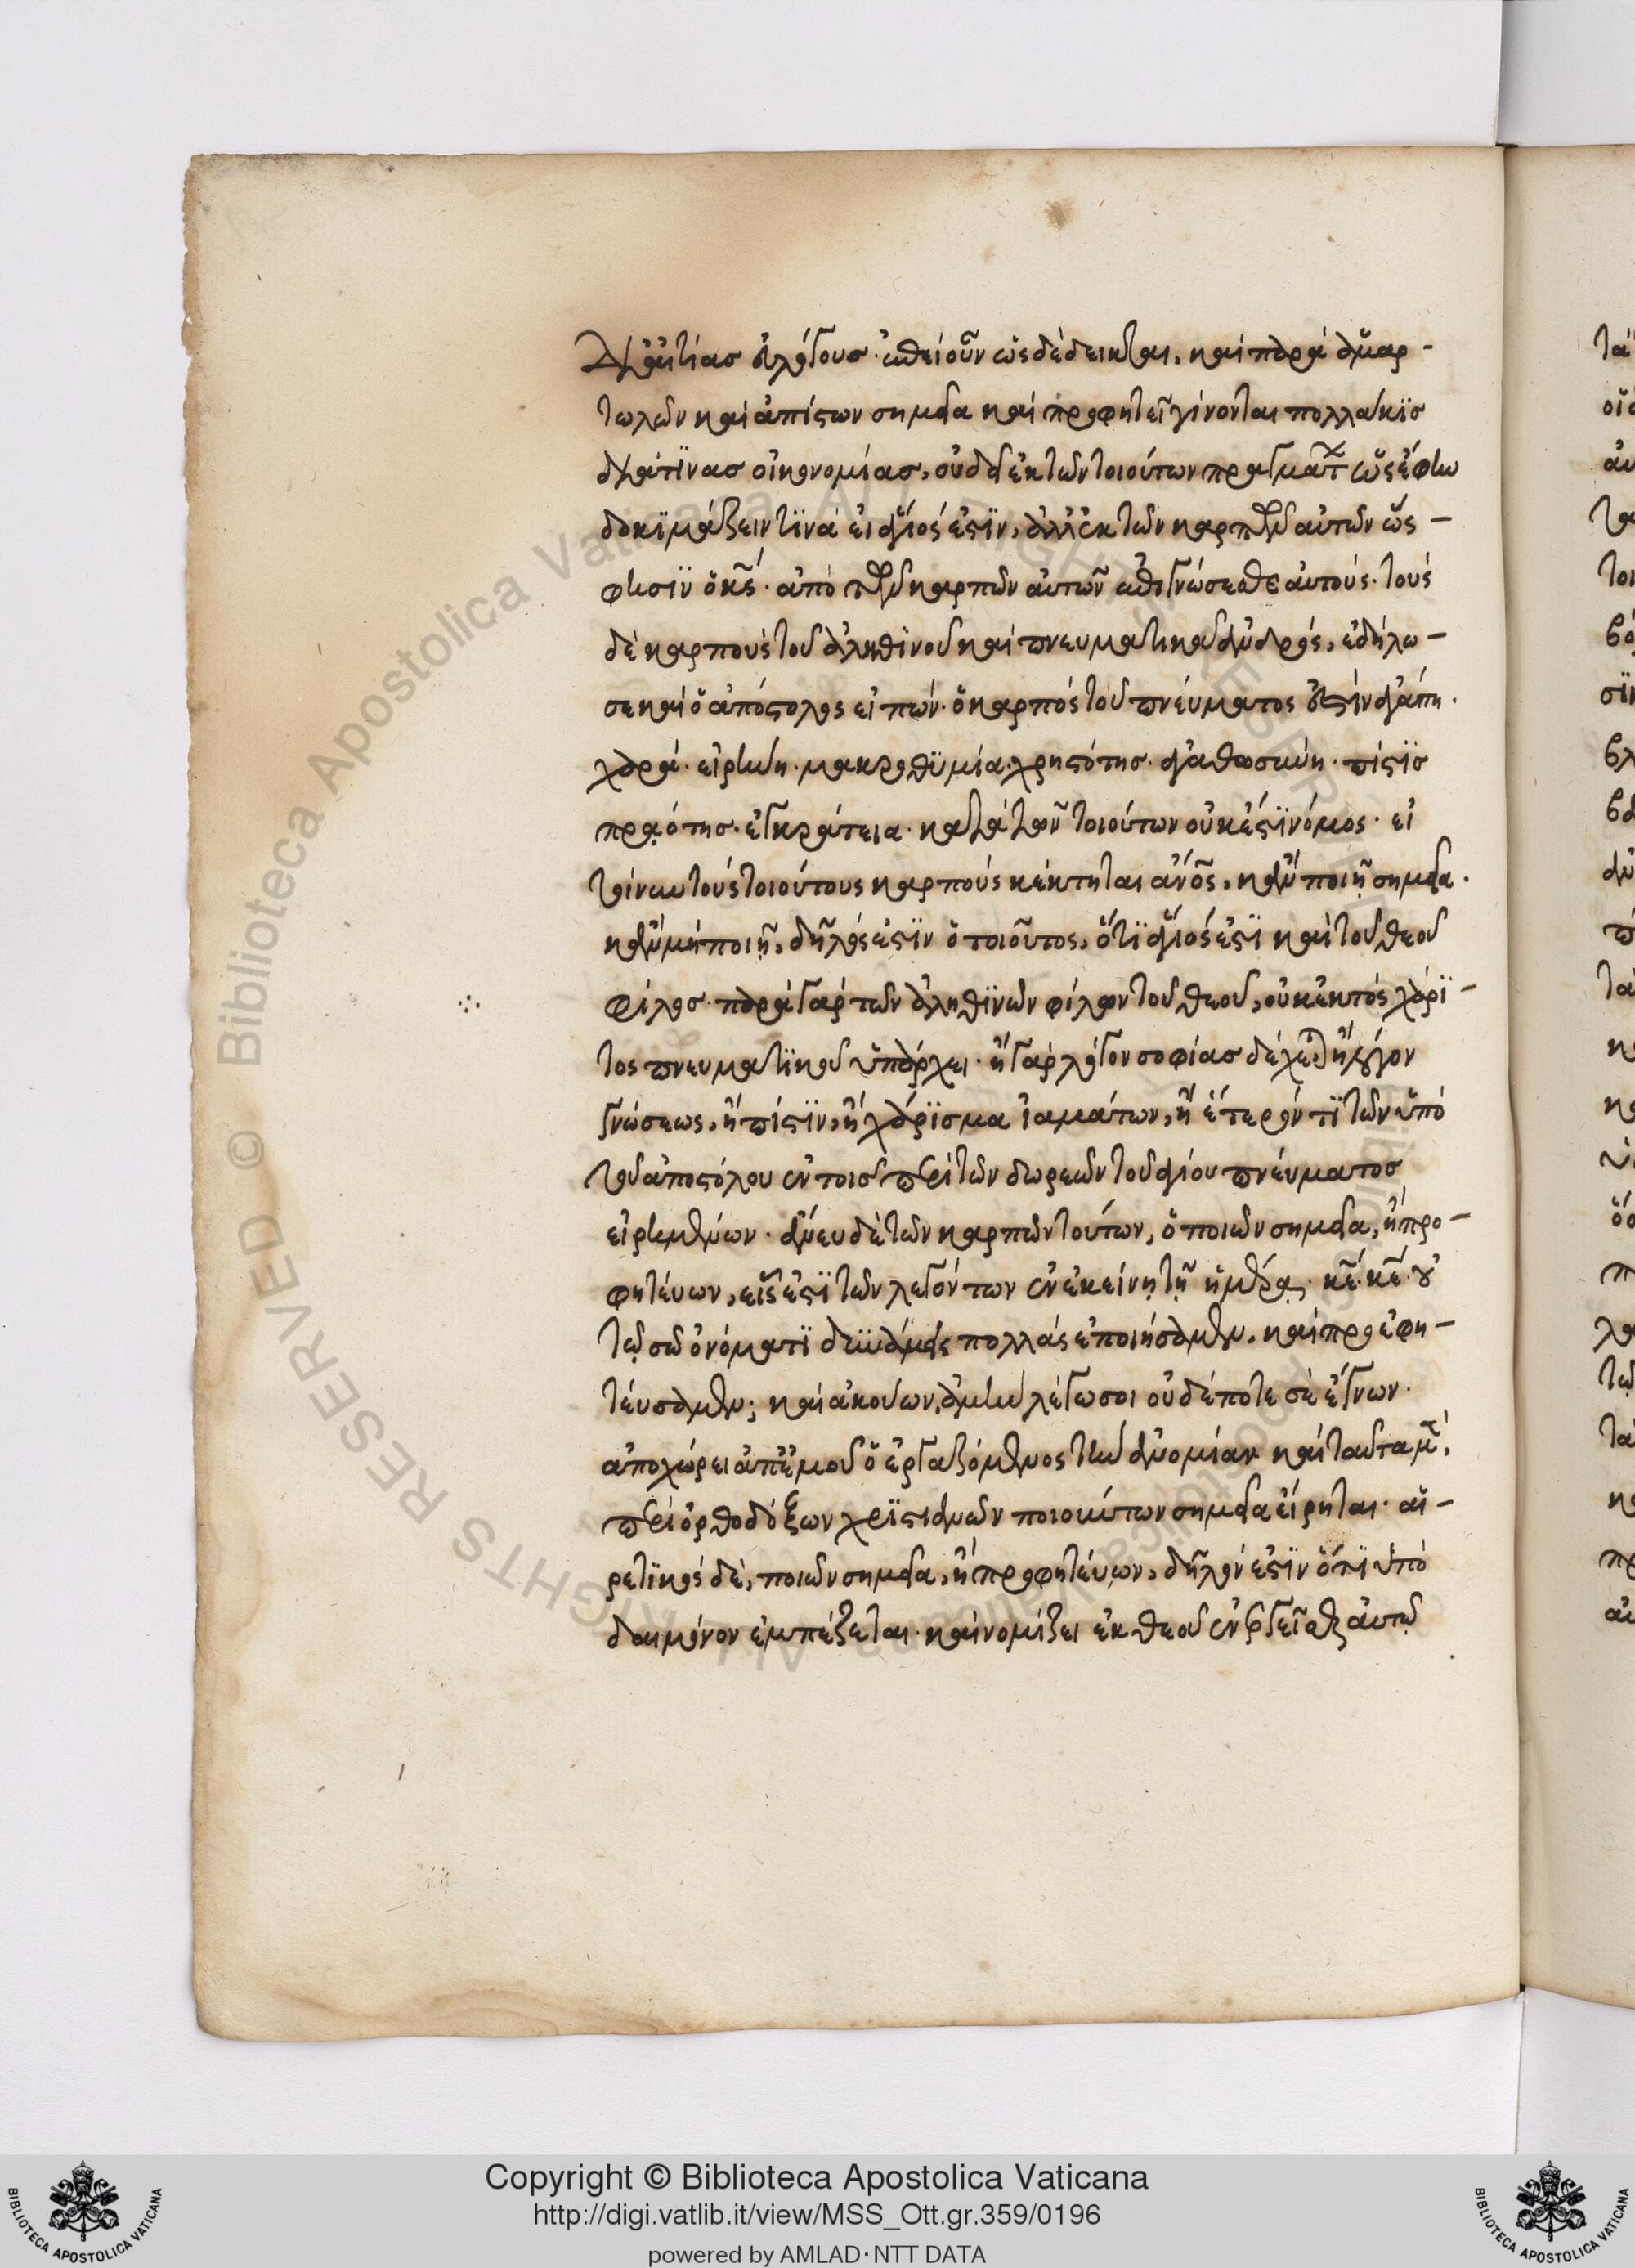 δι' αἰτίας εὐλόγους· ἐπεὶ οὖν ὡς δέδεικται, καὶ παρὰ ἁμαρ-
τωλῶν καὶ ἀπίστων σημεῖα καὶ προφητεῖαι γίνονται πολλάκις
διά τινας οἰκονομίας, οὐ δεῖ ἐκ τῶν τοιούτων πραγμάτ ὡς ἔφην
δοκιμάζειν τινὰ εἰ ἅγιός ἐστιν, ἀλλ' ἐκ τῶν καρπῶν αὐτῶν ὥς
φησιν ὁ κς· ἀπὸ τῶν καρπῶν αὐτῶν ἐπιγνώσεσθε αὐτούς· τοὺς
δὲ καρποὺς τοῦ ἀληθινοῦ καὶ πνευματικοῦ ἀνδρὸς, ἐδήλω-
σε καὶ ὁ ἀπόστολος εἰπών· ὁ καρπὸς τοῦ πνεύματος ἐστὶν ἀγάπη·
χαρά· εἰρήνη· μακροθυμία· χρηστότης· ἀγαθωσύνη· πίστις
πραότης· ἐγκράτεια· κατὰ τῶν τοιούτων οὐκ ἔστι νόμος· εἰ
τοίνυν τοὺς τοιούτους καρποὺς κέκτηται ἄνος, κἂν ποιῇ σημεῖα·
κἂν μὴ ποιῇ, δῆλός ἐστιν ὁ τοιοῦτος, ὅτι ἅγιός ἐστι καὶ τοῦ θεοῦ
φίλος· παρὰ γὰρ τῶν ἀληθινῶν φίλων τοῦ θεοῦ, οὐκ ἐκτὸς χαρί-
τος πνευματικοῦ ὑπάρχει· ἢ γὰρ λόγον σοφίας δέχεται ἢ λόγον
γνώσεως, ἢ πίστιν, ἢ χάρισμα ἰαμάτων, ἢ ἕτερόν τι τῶν ὑπὸ
τοῦ ἀποστόλου ἐν τοῖς περὶ τῶν δωρεῶν τοῦ ἁγίου πνεύματος
εἰρημένων· ἄνευ δὲ τῶν καρπῶν τούτων, ὁ ποιῶν σημεῖα, ἢ προ-
φητεύων, εἷς ἐστι τῶν λεγόντων ἐν ἐκείνῃ τῇ ἡμέρᾳ· κε κε οὐ
τῷ σῷ ὀνόματι δυνάμεις πολλὰς ἐποιήσαμεν, καὶ προεφη-
τεύσαμεν; καὶ ἀκούων, ἀμὴν λέγω σοι οὐδέποτε σὲ ἔγνων·
ἀποχώρει ἀπ' ἐμοῦ ὁ ἐργαζόμενος τὴν ἀνομίαν καὶ ταῦτα μὲν
περὶ ὀρθοδόξων χριστιανῶν ποιούντων σημεῖα εἴρηται· αἱ-
ρετικὸς δὲ, ποιῶν σημεῖα, ἢ προφητεύων, δῆλόν ἐστιν ὅτι ὑπὸ
δαιμόνων ἐμπαίζεται· καὶ νομίζει ἐκ θεοῦ ἐνεργεῖσθαι αὐτῷ
Copyright © Biblioteca Apostolica Vaticana
http://digi.vatlib.it/view/MSS_Ott.gr.359/0196
powered by AMLAD·NTT DATA